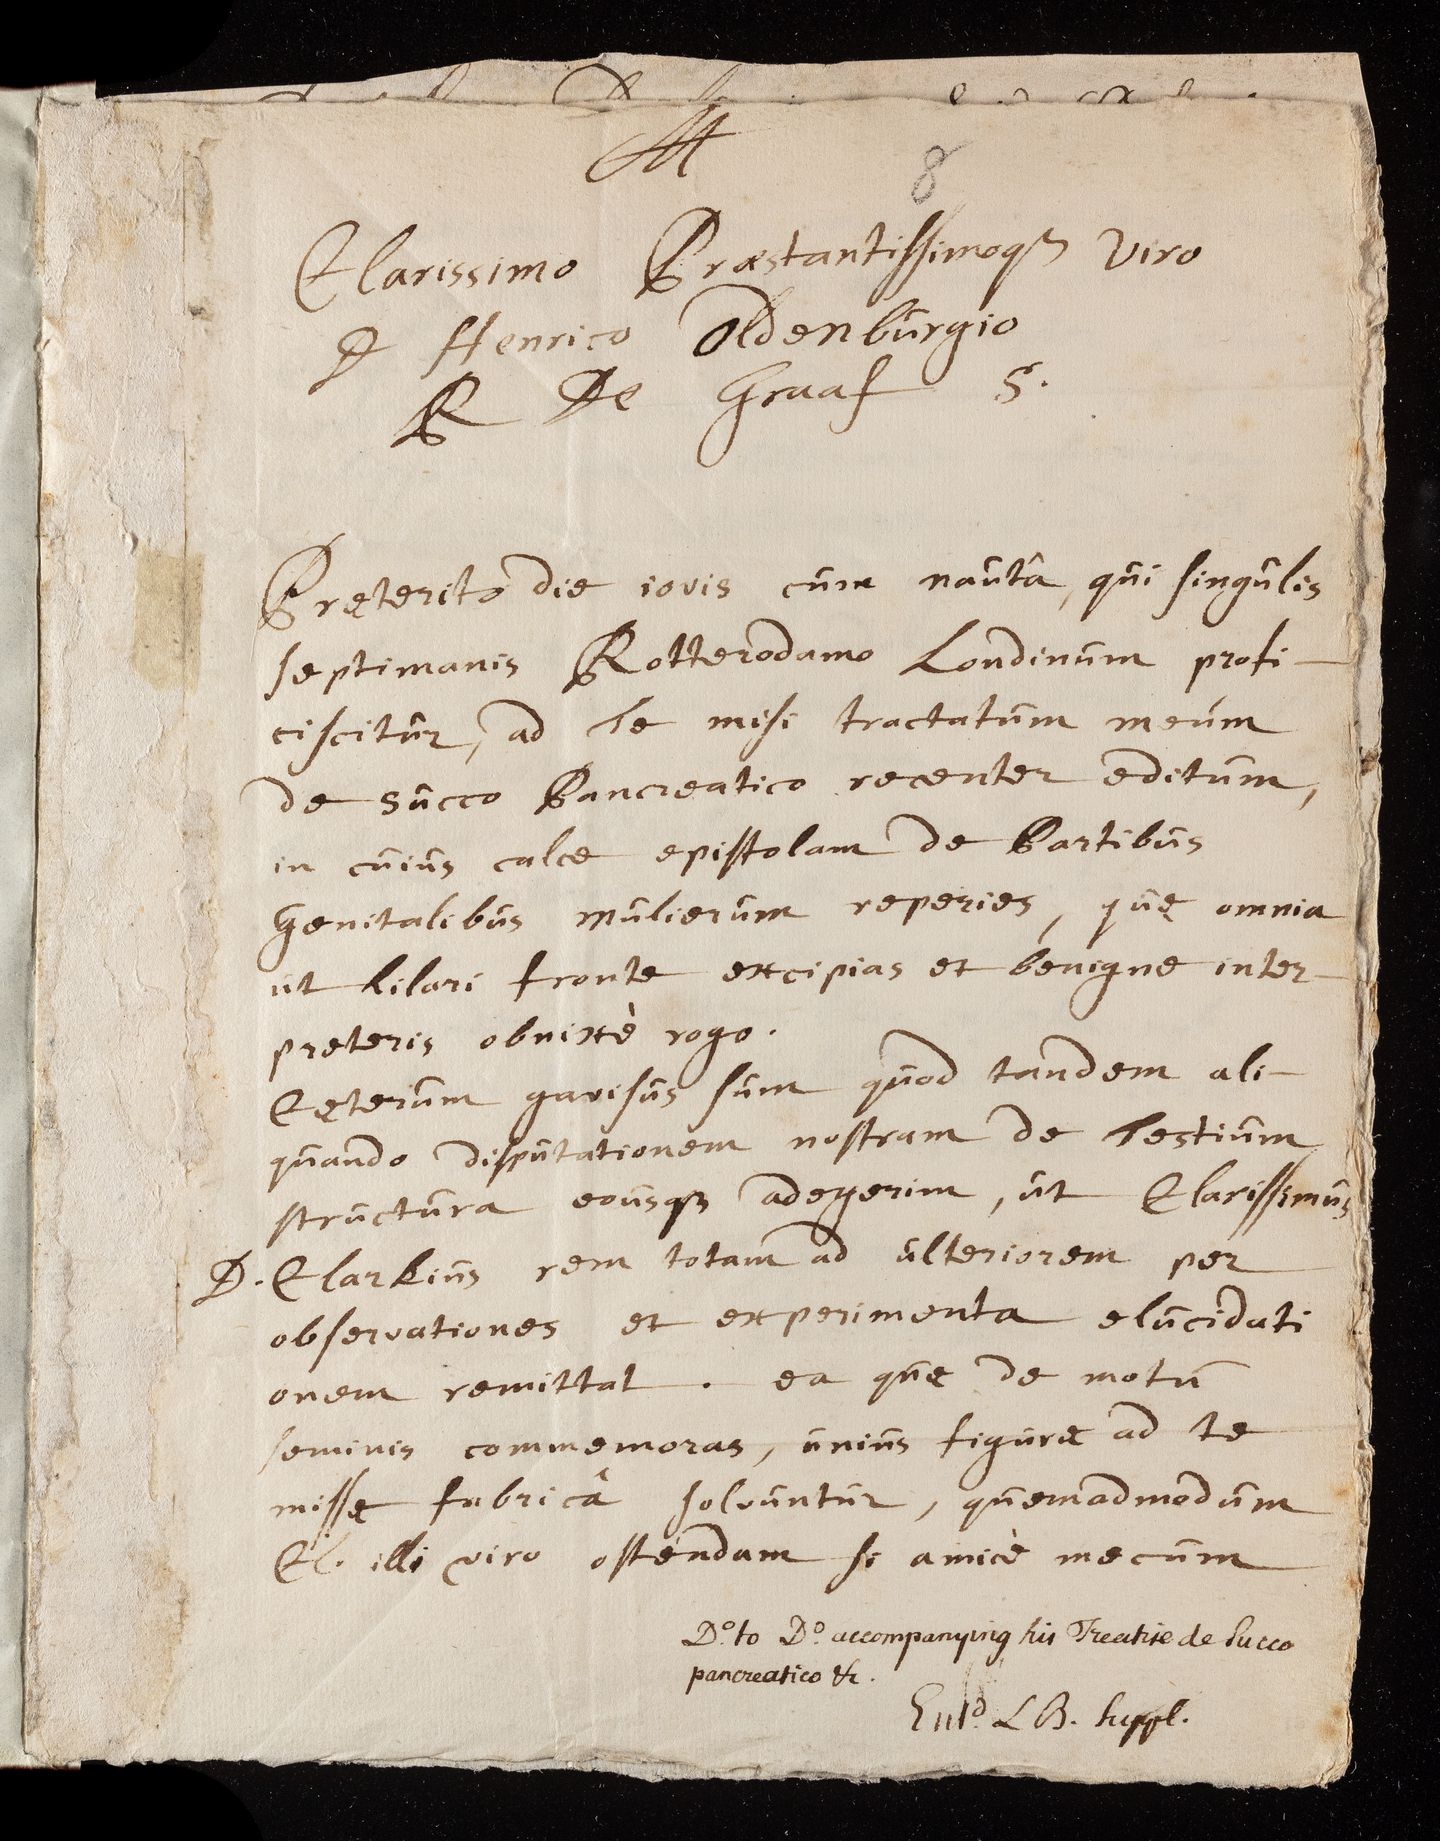 8
Clarissimo Præstantissimoq3 Viro
D Henrico Oldenburgio
R De Graaf S.
Pręterito die iovis cum nautâ, qui singulis
septimanis Rotterodamo Londinum profi-
ciscitur, ad te misi tractatum meum
de succo Pancreatico recenter editum,
in cuius calce epistolam de Partibus
Genitalibus mulierum reperies, quę omnia
ut hilari fronte excipias et benigne inter-
preteris obnixè rogo.
Cęterum gavisus sum quod tandem ali-
quando disputationem nostram de testium
structura eousq3 adegerim, ut Clarissimus
D. Clarkius rem totam ad ulteriorem per
observationes et experimenta elucidati
onem remittat. ea quę de motu
seminis commemoras, unius figurę ad te
missę fabricâ solvuntur, quemadmodum
Cl. illi viro ostendam si amicè mecum
Do. to Do. accompanying his Treatise de Succo
pancreatico &c.
Entd. L B. Suppl.